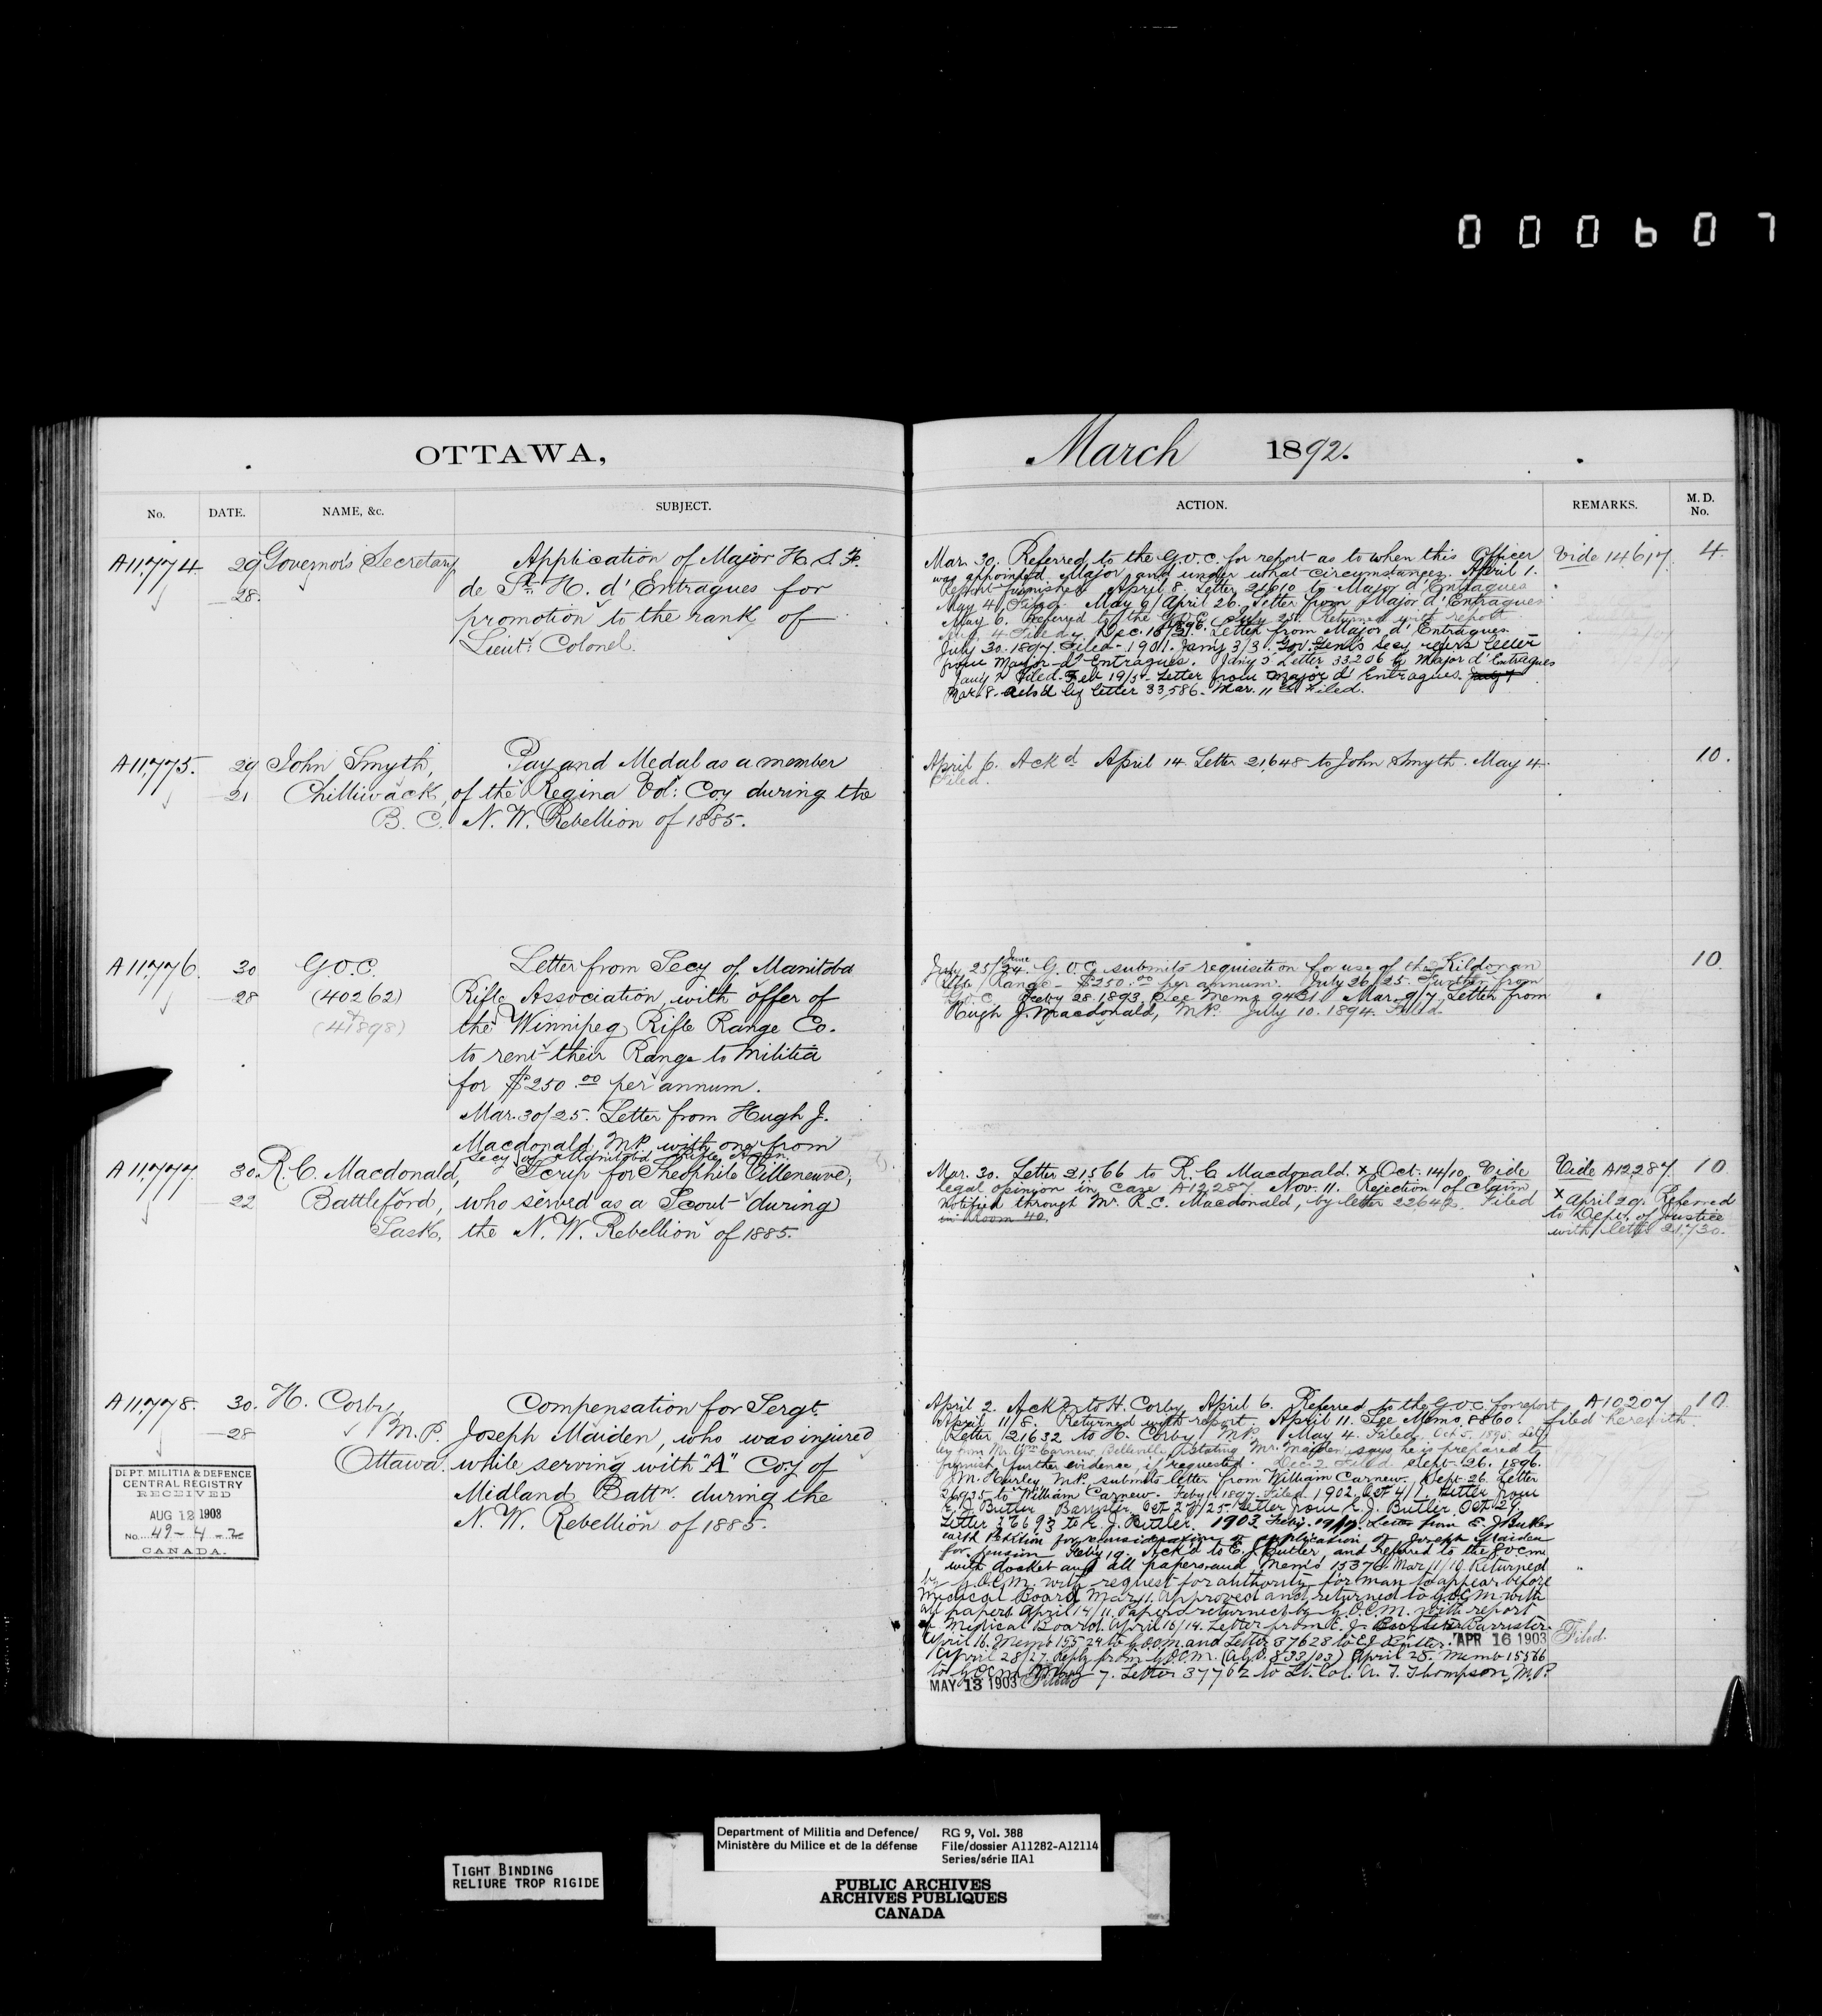 000607
OTTAWA,
No.
DATE.
NAME, &c.
SUBJECT.
A11,774.
29
28.
Governor's Secretary
Application of Major H. S. F.
de St. H. d'Entragues for
promotion to the rank of
Lieut: Colonel.
A11,775.
29
21
John Smyth,
Chilliwack,
B. C.
Pay and Medal as a member
of the Regina Vol: Coy during the
N. W. Rebellion of 1885.
A11,776.
30
28
G.O.C.
(40262)
(41898)
Letter from Secy of Manitoba
Rifle Association, with offer of
the Winnipeg Rifle Range Co.
to rent their Range to Militia
for $250.00 per annum.
Mar. 30/25. Letter from Hugh J.
Macdonald, M.P. with one from
Secy of Manitoba Rifle Assn.
A11,777.
30.
22
R. C. Macdonald,
Battleford,
Sask.
Scrip for Theophile Villeneuve,
who served as a Scout during
the N. W. Rebellion of 1885.
A11,778.
30.
28
H. Corby,
M.P.
Ottawa.
Compensation for Sergt.
Joseph Maiden, who was injured
while serving with "A" Coy of
Midland Battn. during the
N. W. Rebellion of 1885.
DEPT. MILITIA & DEFENCE
CENTRAL REGISTRY
RECEIVED
AUG 12 1908
No. 49-4-2
CANADA.
March 1892.
ACTION.
REMARKS.
M. D.
No.
Mar. 30. Referred to the G.O.C. for report as to when this Officer
was appointed Major and under what circumstances. April 1.
Report furnished. April 8. Letter 21610 to Major d'Entragues
May 4. Filed. May 6/April 26. Letter from Major d'Entragues
May 6. Referred to the G.O.C. July 25. Returned with report
4 Filed. 1896. Dec. 18/ Letter from Major d'Entragues.
July 30. 1897. Filed. 1901. Jany 3/31. Gov. Genl's Secy refers letter
from Major d'Entragues. Jany 5 Letter 33206 to Major d'Entragues
Jany 7 Filed. Feb 19/5. Letter from Major d'Entragues.
Mar. 8. Ack'd by letter 33,586. Mar. 11 Filed.
Vide 14617
4.
April 6. Ackd April 14. Letter 21,648 to John Smyth. May 4.
Filed.
10.
July 25/June 24. G.O.C. submits requisition for use of the Kildonan
Rifle Range - $250.00 per annum. July 26/25. Further from
G.O.C. Feby 28. 1893. See Memo 9431. Mar. 9/7. Letter from
Hugh J. Macdonald, M.P. July 10. 1894. Filed.
10
Mar. 30. Letter 21566 to R. C. Macdonald. x Oct. 14/10, Vide
legal opinion in Case A12,287 Nov. 11. Rejection of claim
notified through Mr. R. C. Macdonald, by letter 22642. Filed
in Room 40.
Vide A12,287
x April 29. Referred
to Dept. of Justice
with letter 21,730.
10
April 2. Ackd to H. Corby. April 6. Referred to the G.O.C. for report
April 11/8. Returned with report. April 11. See Memo. 8860.
Letter 21632 to H. Corby M.P. May 4. Filed. Oct 5. 1895.
from Mr. Wm Carnew, Belleville, stating Mr. Maiden says he is prepared to
furnish further evidence, if requested. Dec. 2. Filed. Sept. 26. 1896.
J. M. Hurley, M.P. submits letter from William Carnew. Sept. 26. Letter
26,935 to William Carnew. Feby 11. 1897. Filed. 1902. Oct 4/1. Letter from
E. J. Butler Barrister. Oct 27/25. Letter from E. J. Butler. Oct 29.
Letter 36693 to E. J. Butler. 1903 Feby. 19/17. Letter from E. J. Butler
with Petition for reconsideration of application of Joseph Maiden
for pension. Feby 19. Ack'd to E. J. Butler and referred to the G.O.C.M.
with docket and all papers and Memo 15370. Mar. 11/10. Returned
by G.O.C.M. with request for authority for man to appear before
Medical Board. Mar. 11. Approved and returned to G.O.C.M. with
all papers. April 14/11. Papers returned by G.O.C.M. with report
of Medical Board. April 16/14. Letter from E. J. Butler Barrister.
April 16. Memo 15524 to G.O.C.M. and Letter 37628 to E. J. Butler. APR 16 1903
April 28/27. Reply from G.O.C.M. (A.G.O. 833/03) April 28. Memo 15566
to G.O.C.M. May 7. Letter 37762 to Lt. Col. A. T. Thompson, M.P.
MAY 13 1903 Filed
A10,207
filed herewith
Filed.
10
TIGHT BINDING
RELIURE TROP RIGIDE
Department of Militia and Defence/
Ministère du Milice et de la défense
RG 9, Vol. 388
File/dossier A11282-A12114
Series/série IIA1
PUBLIC ARCHIVES
ARCHIVES PUBLIQUES
CANADA